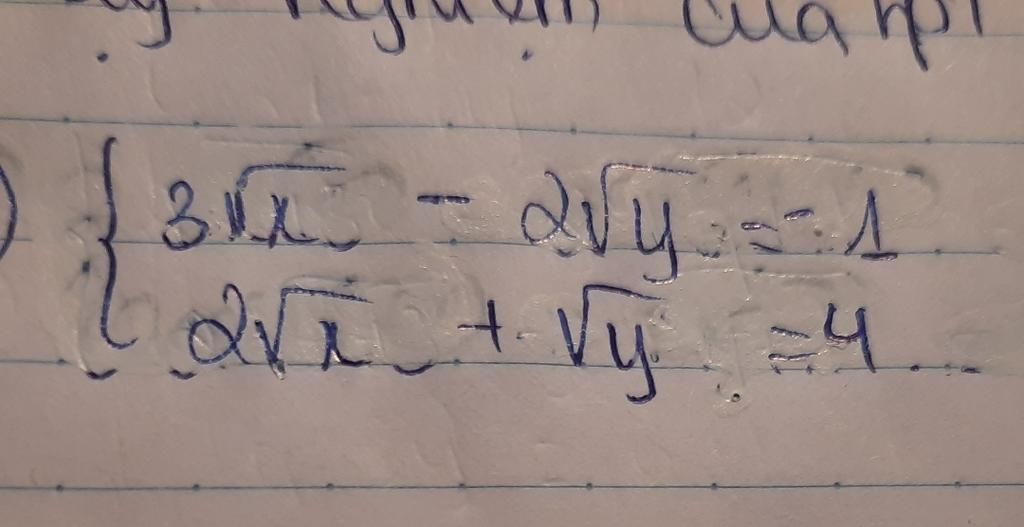 nghiệm của hpt
) { 3√x - 2√y = -1
2√x + √y = 4